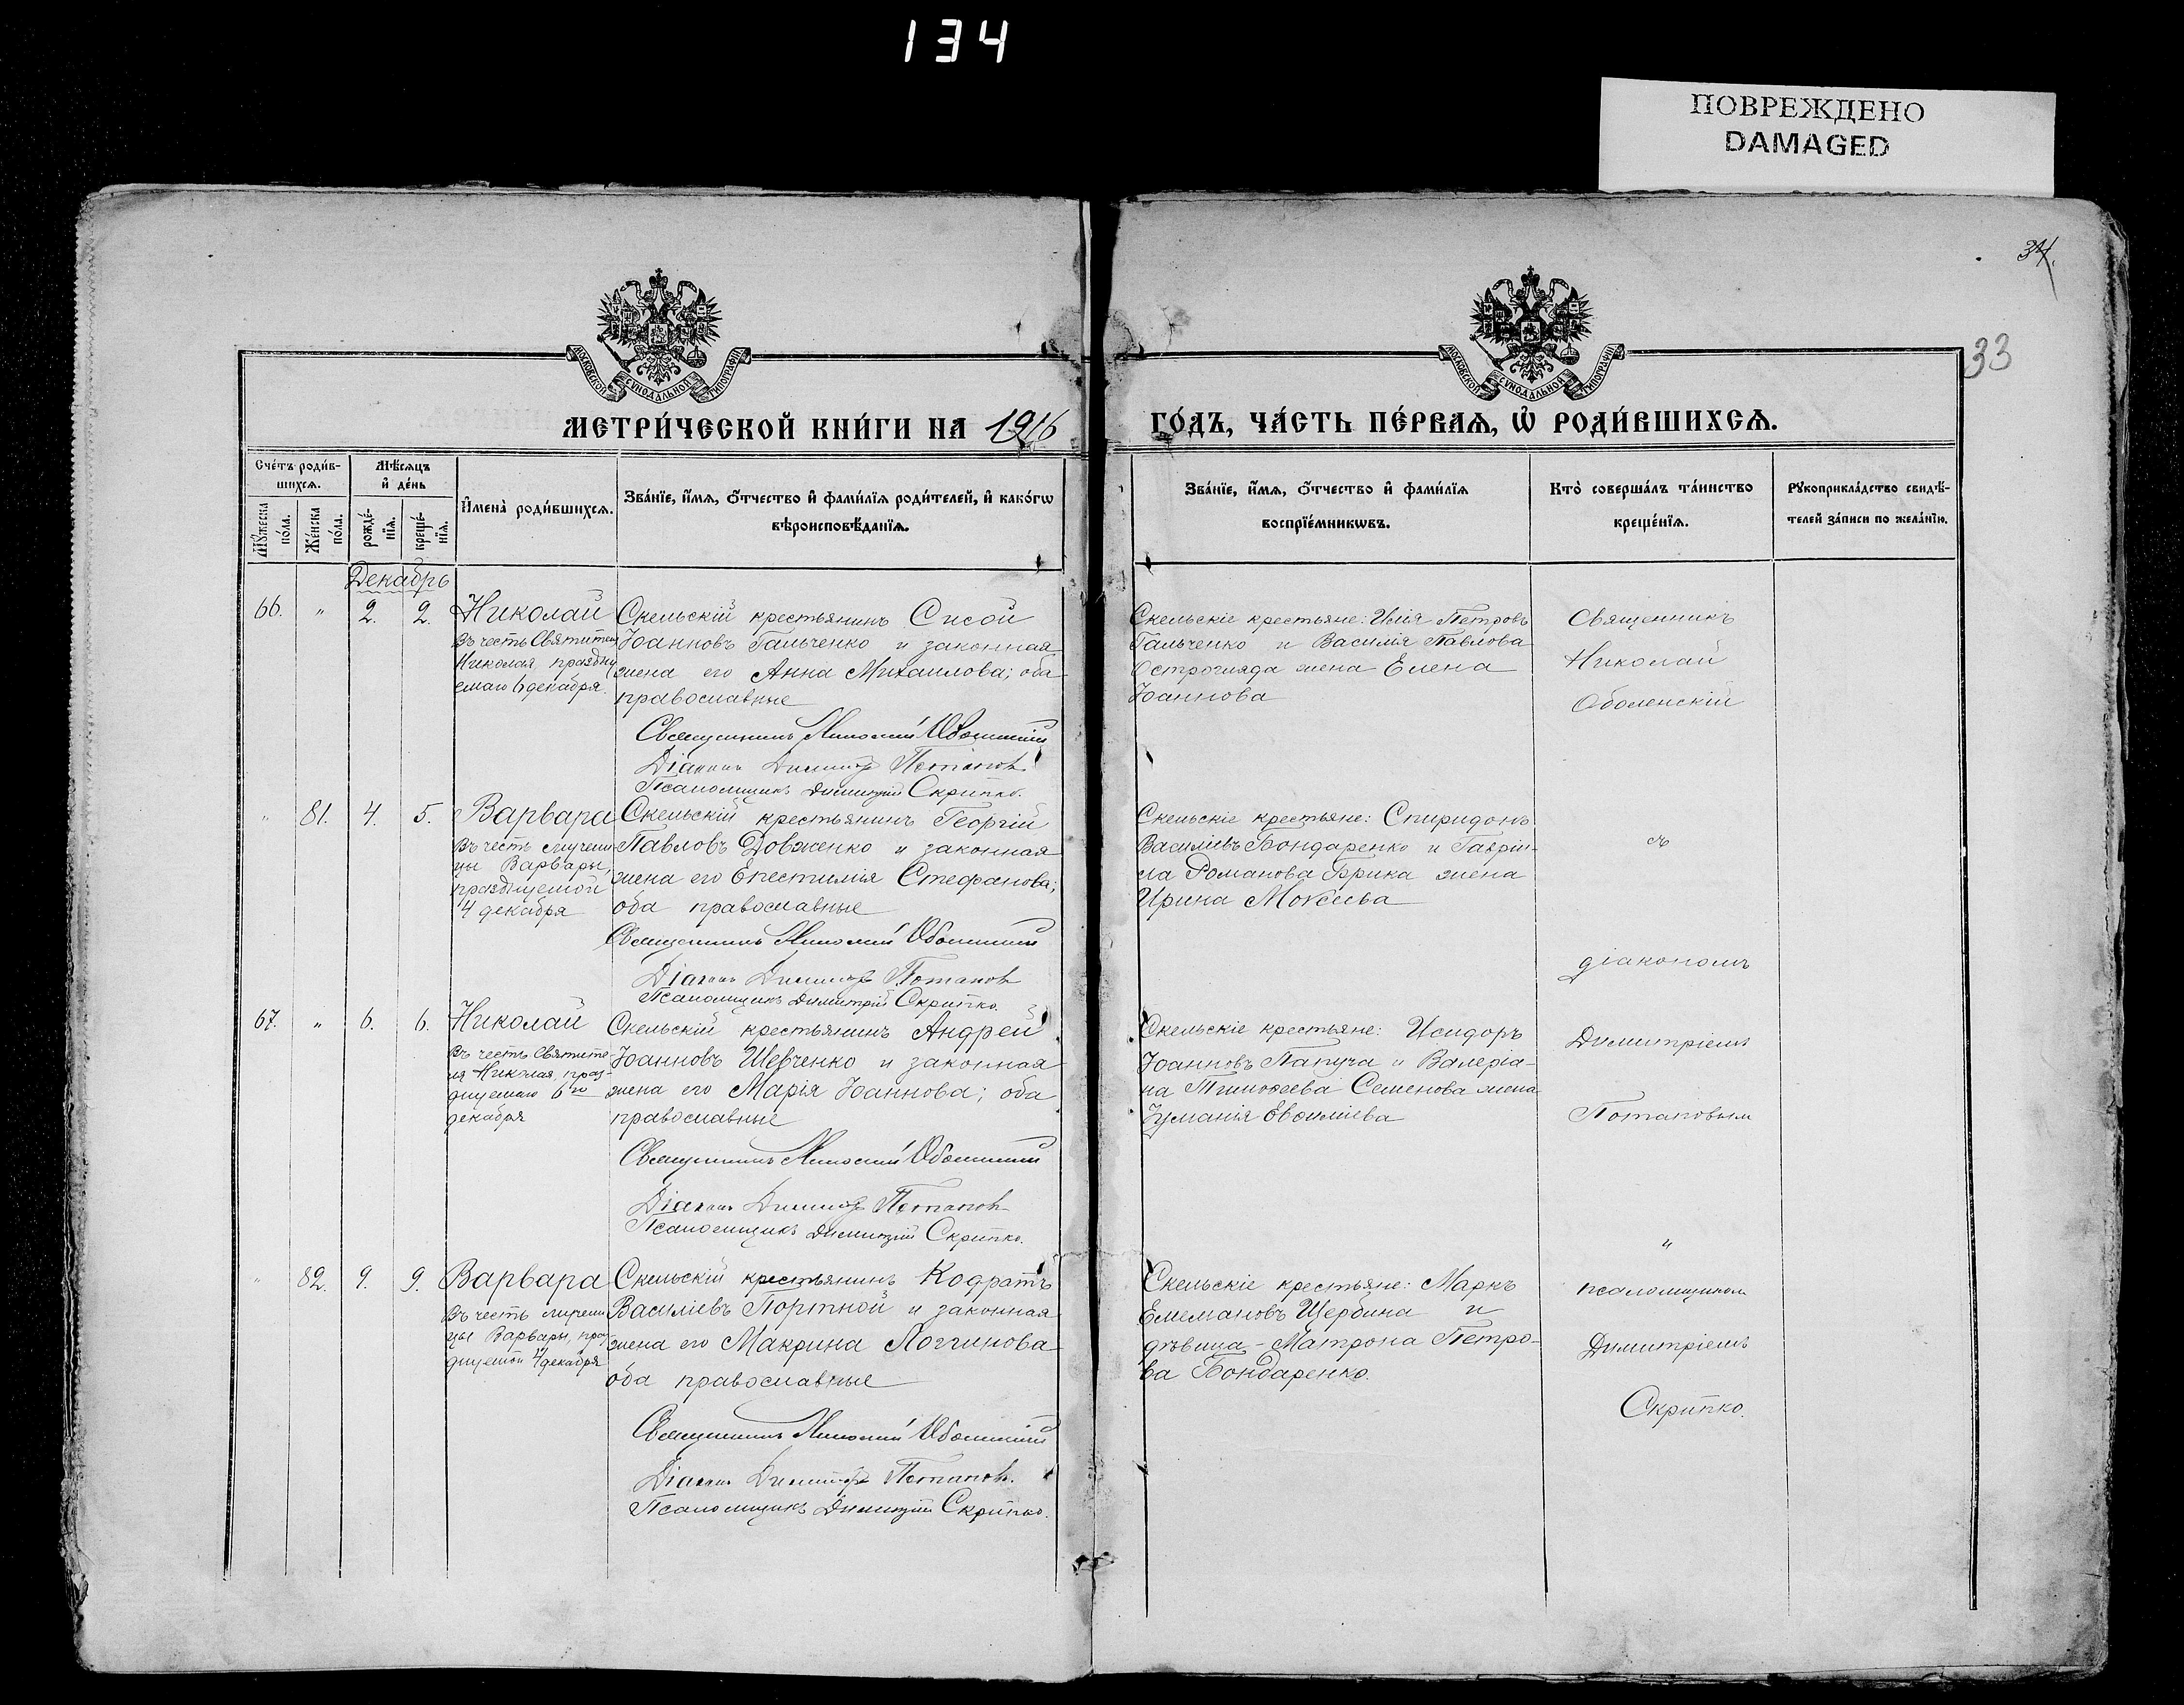 134
ПОВРЕЖДЕНО
DAMAGED
34.
33
МОСКОВСКОЙ СѴНОДАЛЬНОЙ ТИПОГРАФІИ
МОСКОВСКОЙ СѴНОДАЛЬНОЙ ТИПОГРАФІИ
МЕТРИ́ЧЕСКОЙ КНИ́ГИ НА 1916
ГО́ДЪ, ЧА́СТЬ ПЕ́РВАѦ, Ѡ҆ РОДИ́ВШИХСѦ.
Сче́тъ роди́в-
шихсѧ.
Мꙋ́жеска
по́ла.
Же́нска
по́ла.
Мѣ́сѧцъ
и҆ де́нь
рожде́-
нїѧ.
креще́-
нїѧ.
И҆мена̀ роди́вшихсѧ.
Зва́нїе, и҆́мѧ, ѻ҆́тчество и҆ фами́лїѧ роди́телей, и҆ како́гѡ
вѣроисповѣ́данїѧ.
Зва́нїе, и҆́мѧ, ѻ҆́тчество и҆ фами́лїѧ
воспрїе́мникѡвъ.
Кто̀ соверша́лъ та́инство
креще́нїѧ.
Рꙋкоприкла́дство свидѣ́-
телей за́писи по жела́нїю.
Декабрь
66. " 2. 2. Николай
Въ честь Святителя
Николая, праздну
емаго 6 декабря.
Скельскій крестьянинъ Сисой
Іоанновъ Гальченко и законная
жена его Анна Михаилова; оба
православные
Священникъ Николай Оболенскій
Діаконъ Димитрій Потаповъ
Псаломщикъ Димитрій Скрипко.
Скельскіе крестьяне: Илія Петровъ
Гальченко и Василія Павлова
Остроглада жена Елена
Іоаннова
Священникъ
Николай
Оболенскій
" 81. 4. 5. Варвара
Въ честь мучени
цы Варвары,
празднуемой
4 декабря
Скельскій крестьянинъ Георгій
Павловъ Довженко и законная
жена его Епестимія Стефанова;
оба православные
Священникъ Николай Оболенскій
Діаконъ Димитрій Потаповъ
Псаломщикъ Димитрій Скрипко.
Скельскіе крестьяне: Спиридонъ
Василіевъ Бондаренко и Гавріи-
ла Романова Брика жена
Ирина Мокеева
съ
діакономъ
Димитріемъ
Потаповымъ
67. " 6. 6. Николай
Въ честь Святите-
ля Николая, праз-
днуемаго 6го
декабря
Скельскій крестьянинъ Андрей
Іоанновъ Шевченко и законная
жена его Марія Іоаннова; оба
православные
Священникъ Николай Оболенскій
Діаконъ Димитрій Потаповъ
Псаломщикъ Димитрій Скрипко.
Скельскіе крестьяне: Исидоръ
Іоанновъ Папуча и Валеріа-
на Тимоѳеева Семенова жена
Іуманія Евѳиміева
" 82. 9. 9. Варвара
Въ честь мучени
цы Варвары, праз
днуемой 4 декабря
Скельскій крестьянинъ Кодратъ
Василіевъ Портной и законная
жена его Макрина Логгинова
оба православные
Священникъ Николай Оболенскій
Діаконъ Димитрій Потаповъ.
Псаломщикъ Димитрій Скрипко.
Скельскіе крестьяне: Маркъ
Емельяновъ Щербина и
дѣвица - Матрона Петро-
ва Бондаренко.
"
псаломщикомъ
Димитріемъ
Скрипко.